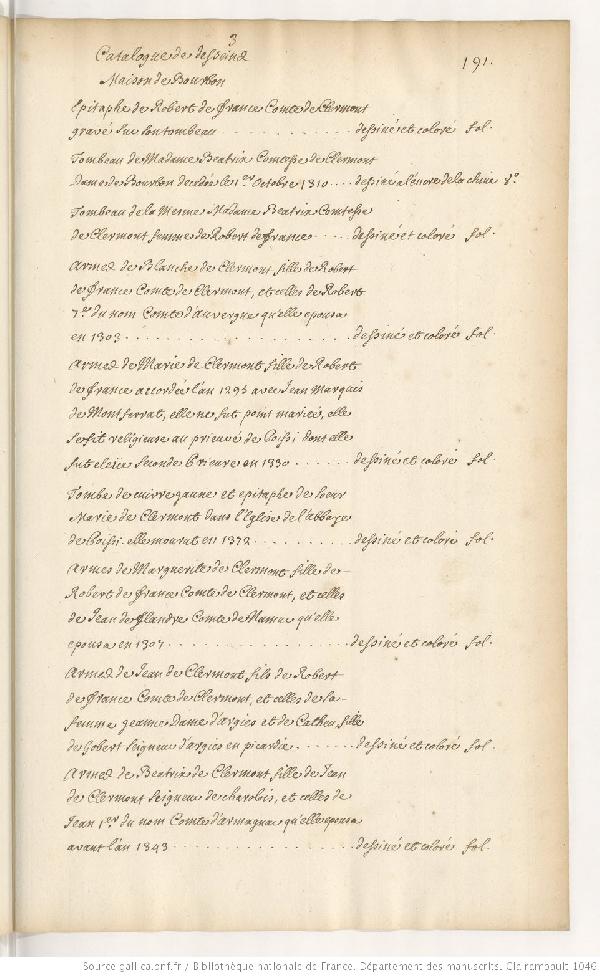 3
191.
Catalogue de desseins
Maison de Bourbon
Epitaphe de Robert de france Comte de Clermont
gravé sur son tombeau . . . . . . dessiné et coloré fol.
Tombeau de Madame Beatrix Comtesse de Clermont
Dame de Bourbon decedée le 1.er Octobre 1310 . . . dessiné a l'encre de la chine 8.o
Tombeau de la Mesme Madame Beatrix Comtesse
de Clermont femme de Robert de france . . . dessiné et coloré fol.
Armes de Blanche de Clermont fille de Robert
de france Comte de Clermont, et celles de Robert
7.e du nom Comte d'auvergne qu'elle epousa
en 1303 . . . . . . dessiné et coloré fol.
Armes de Marie de Clermont fille de Robert
de france accordée l'an 1295 avec Jean Marquis
de Montferrat, elle ne fut point mariée, elle
se fit religieuse au prieuré de Poissi dont elle
fut eleüe seconde Prieure en 1330 . . . . . . dessiné et coloré fol.
Tombe de cuivre jaune et epitaphe de soeur
Marie de Clermont dans l'Eglise de l'abbaye
de Poissi. elle mourut en 1372 . . . . . . dessiné et coloré fol.
Armes de Marguerite de Clermont fille de
Robert de france Comte de Clermont, et celles
de Jean de flandre Comte de Namur qu'elle
epousa en 1307 . . . . . . dessiné et coloré fol.
Armes de Jean de Clermont fils de Robert
de france Comte de Clermont, et celles de sa
femme jeanne Dame d'argies et de Catheu fille
de Gobert seigneur d'argies en picardie . . . . . . dessiné et coloré fol.
Armes de Beatrix de Clermont fille de Jean
de Clermont seigneur de charolois, et celles de
Jean 1.er du nom Comte d'armagnac qu'elle epousa
avant l'an 1343 . . . . . . dessiné et coloré fol.
Source gallica.bnf.fr / Bibliothèque nationale de France. Département des manuscrits. Clairambault 1046